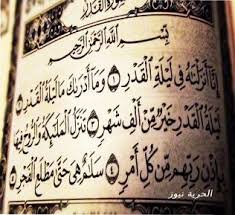 بِسْمِ ٱللَّهِ ٱلرَّحْمَٰنِ ٱلرَّحِيمِ
إِنَّآ أَنزَلْنَٰهُ فِى لَيْلَةِ ٱلْقَدْرِ ١ وَمَآ أَدْرَىٰكَ مَا لَيْلَةُ ٱلْقَدْرِ ٢
لَيْلَةُ ٱلْقَدْرِ خَيْرٌ مِّنْ أَلْفِ شَهْرٍ ٣ تَنَزَّلُ ٱلْمَلَٰٓئِكَةُ وَٱلرُّوحُ فِيهَا
بِإِذْنِ رَبِّهِم مِّن كُلِّ أَمْرٍ ٤ سَلَٰمٌ هِىَ حَتَّىٰ مَطْلَعِ ٱلْفَجْرِ ٥
الحرية نيوز